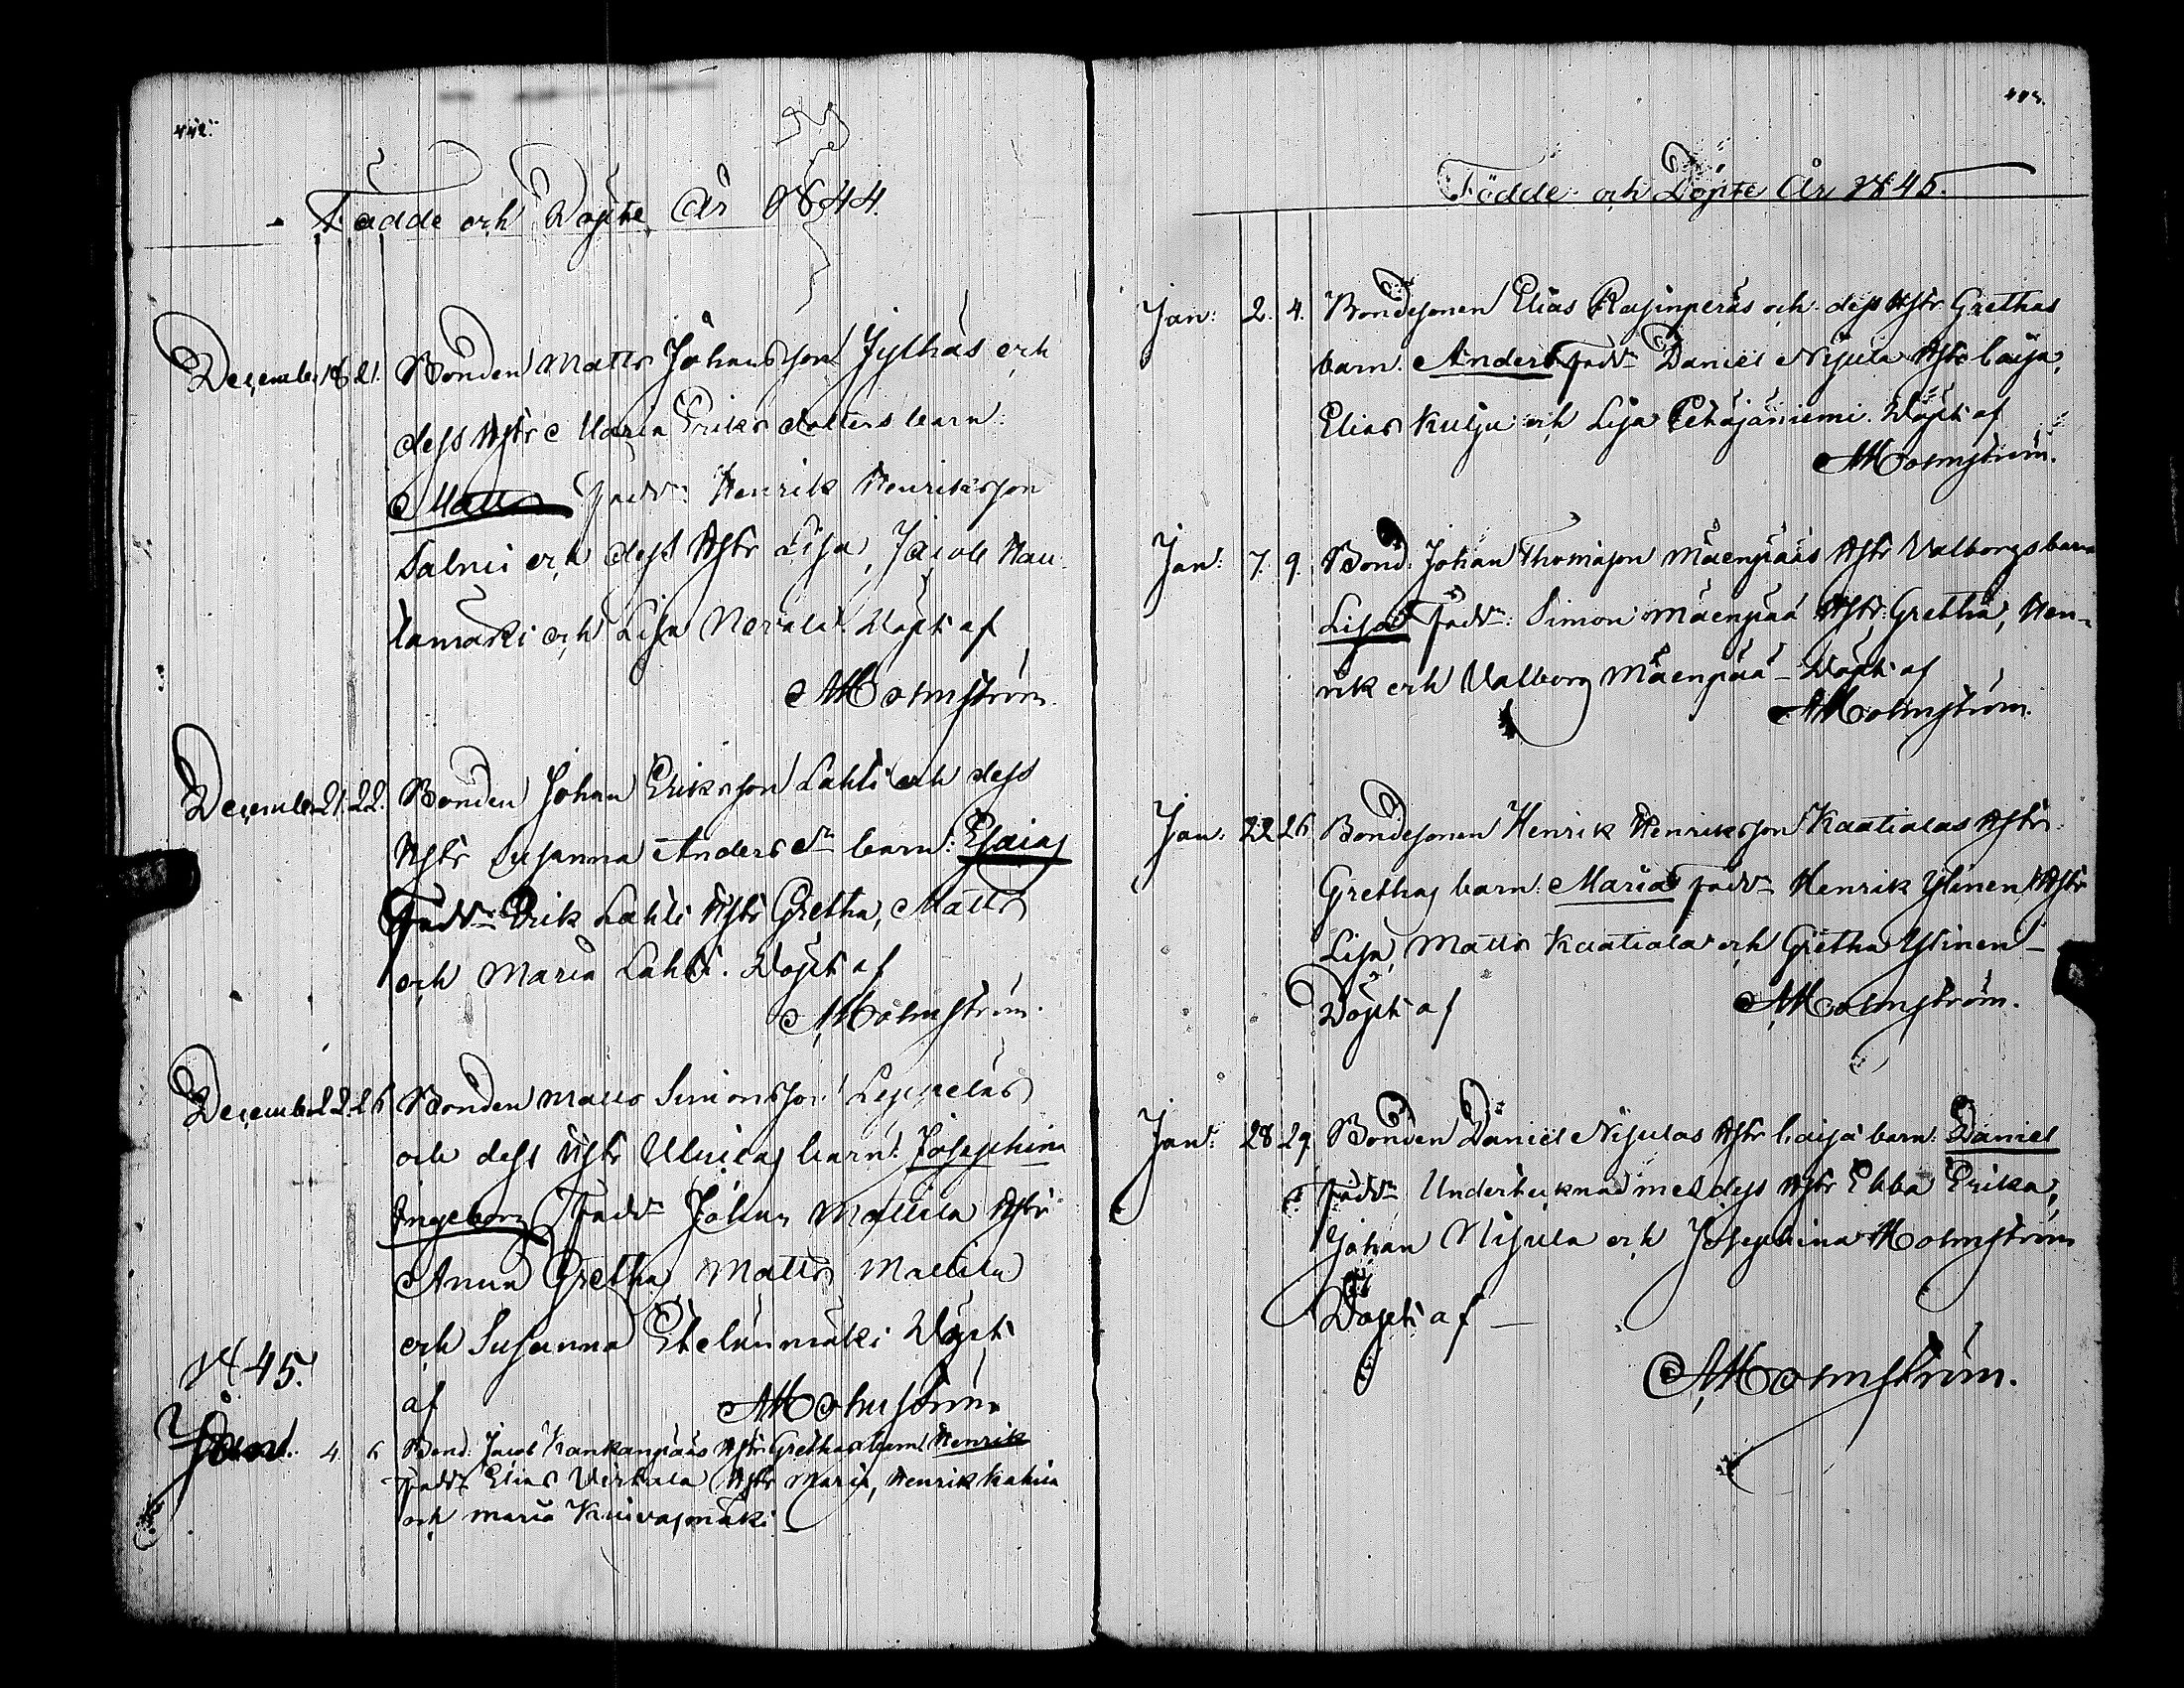 442.
Födde och Döpte År 1844.
December 18. 21. Bonden Matts Johansson Jylhäs och
dess Hstr Maria Eriks dotters barn:
Matts Fadd. Henrik Henriksson
Salmi och dess Hstr Lisa, Jacob Hau-
tamäki och Lisa Nevala. Döpt af
A Holmström.
December 21. 22. Bonden Johan Eriksson Lahti och dess
Hstr Susanna Anders dr barn: Esaias
Fadd. Erik Lahti Hstr Gretha, Matts
och Maria Lahti. Döpt af
A Holmström.
December 22. 26 Bonden Matts Simonsson Leppeläs
och dess Hstr Ulricas barn: Josephina
Ingeborg Fadd. Johan Mattila Hstr
Anna Gretha Matts Mattila
och Susanna Etelänmäki Döpt
af A Holmström
1845.
Jan. 4. 6 Bond: Jacob Kankanpääs Hstr Grethas barn Henrik
Fadd. Elias Virtala Hstr Maria, Henrik
och Maria Kuivasmäki
443.
Födde och Döpte År 1845.
Jan: 2. 4. Bondesonen Elias Rajinperäs och dess Hstr Grethas
barn. Anders Fadd. Daniel Nisula Hstr Caisa,
Elias Kulju och Lisa Petäjäniemi. Döpt af
A Holmström.
Jan: 7. 9. Bond: Johan Thomasson Mäenpääs Hstr Valborgs barn
Lisa Fadd: Simon Mäenpää Hstr Gretha, Hen-
rik och Valborg Mäenpää – Döpt af
A Holmström.
Jan: 22 26 Bondesonen Henrik Henriksson Kaatialas Hstr
Grethas barn: Maria Fadd. Henrik Ylinen Hstr
Lisa, Matts Kaatiala och Gretha Ylinen –
Döpt af A Holmström.
Jan: 28 29. Bonden Daniel Nisulas Hstr Caisa barn: Daniel
Fadd. Undertecknad med dess Hstr Ebba Erika,
Johan Nisula och Josephina Holmström
Döpt af –
A Holmström.